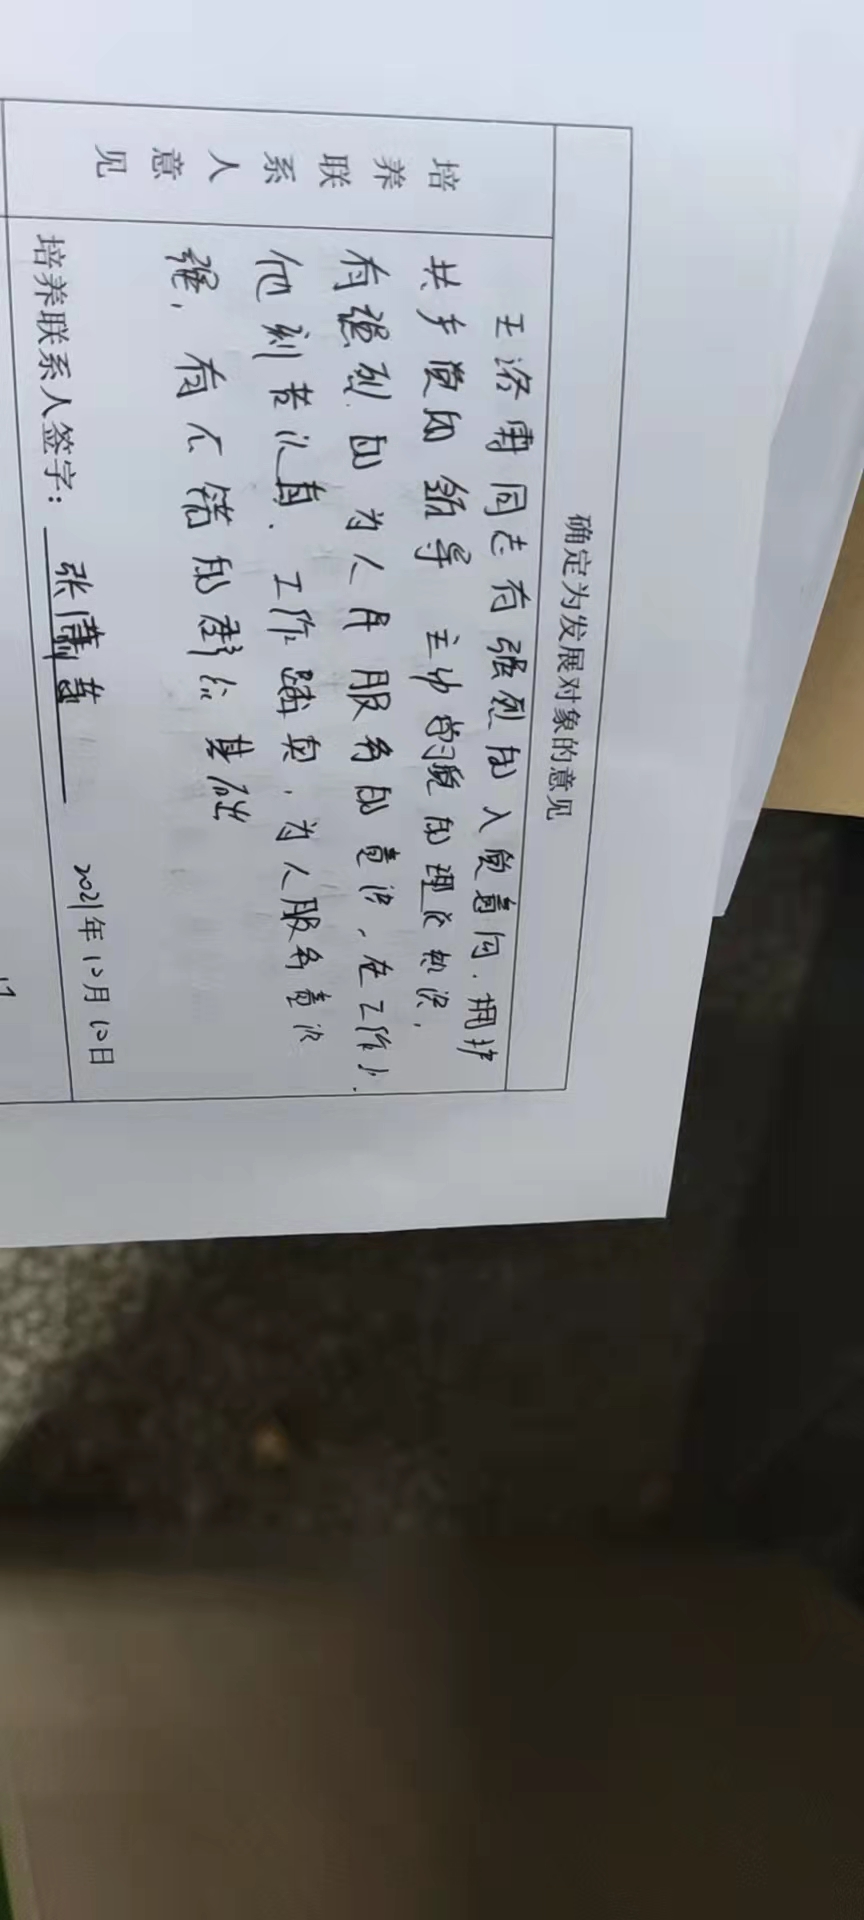 确定为发展对象的意见
培养联系人意见
王洛同志有强烈的入党意向.拥护
共产党的领导 主动学习党的理论知识,
有强烈的为人民服务的意识、在工作上.
他刻苦认真.工作踏实,为人服务意识
强,有不错的群众基础
培养联系人签字: 张
2021年10月10日